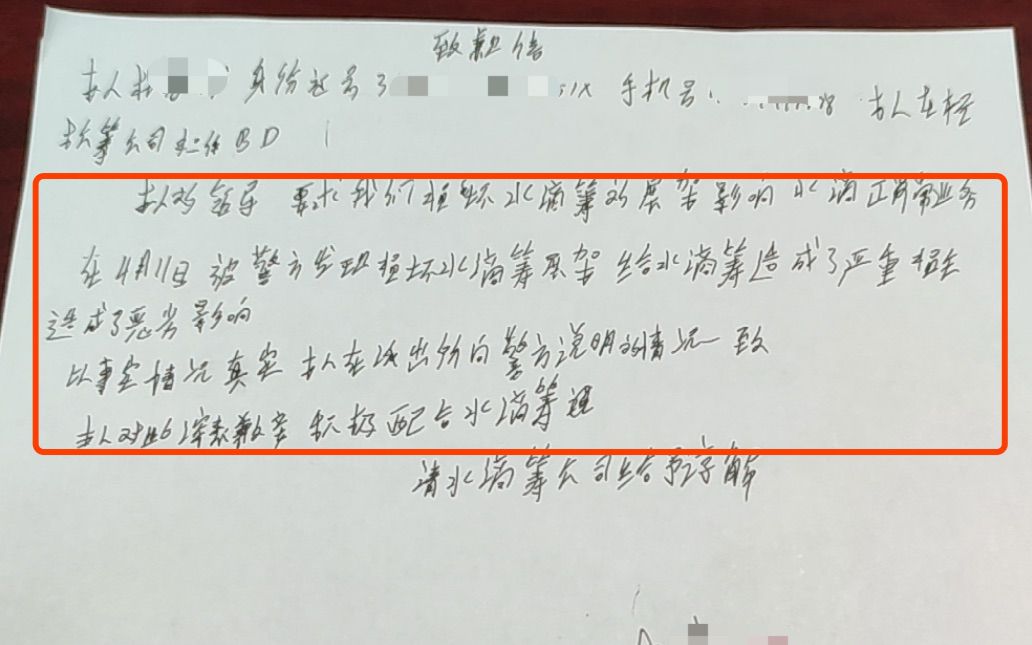 致歉信
本人杜 身份证号3 1X 手机号1 78 本人在轻
松筹公司担任BD
本人的领导 要求我们损坏水滴筹的展架影响水滴正常业务
在4月11日被警方发现损坏水滴筹展架给水滴筹造成了严重损失
造成了恶劣影响
以事实情况真实 本人在派出所向警方说明的情况一致
本人对此深表歉意 积极配合水滴筹
请水滴筹公司给予谅解